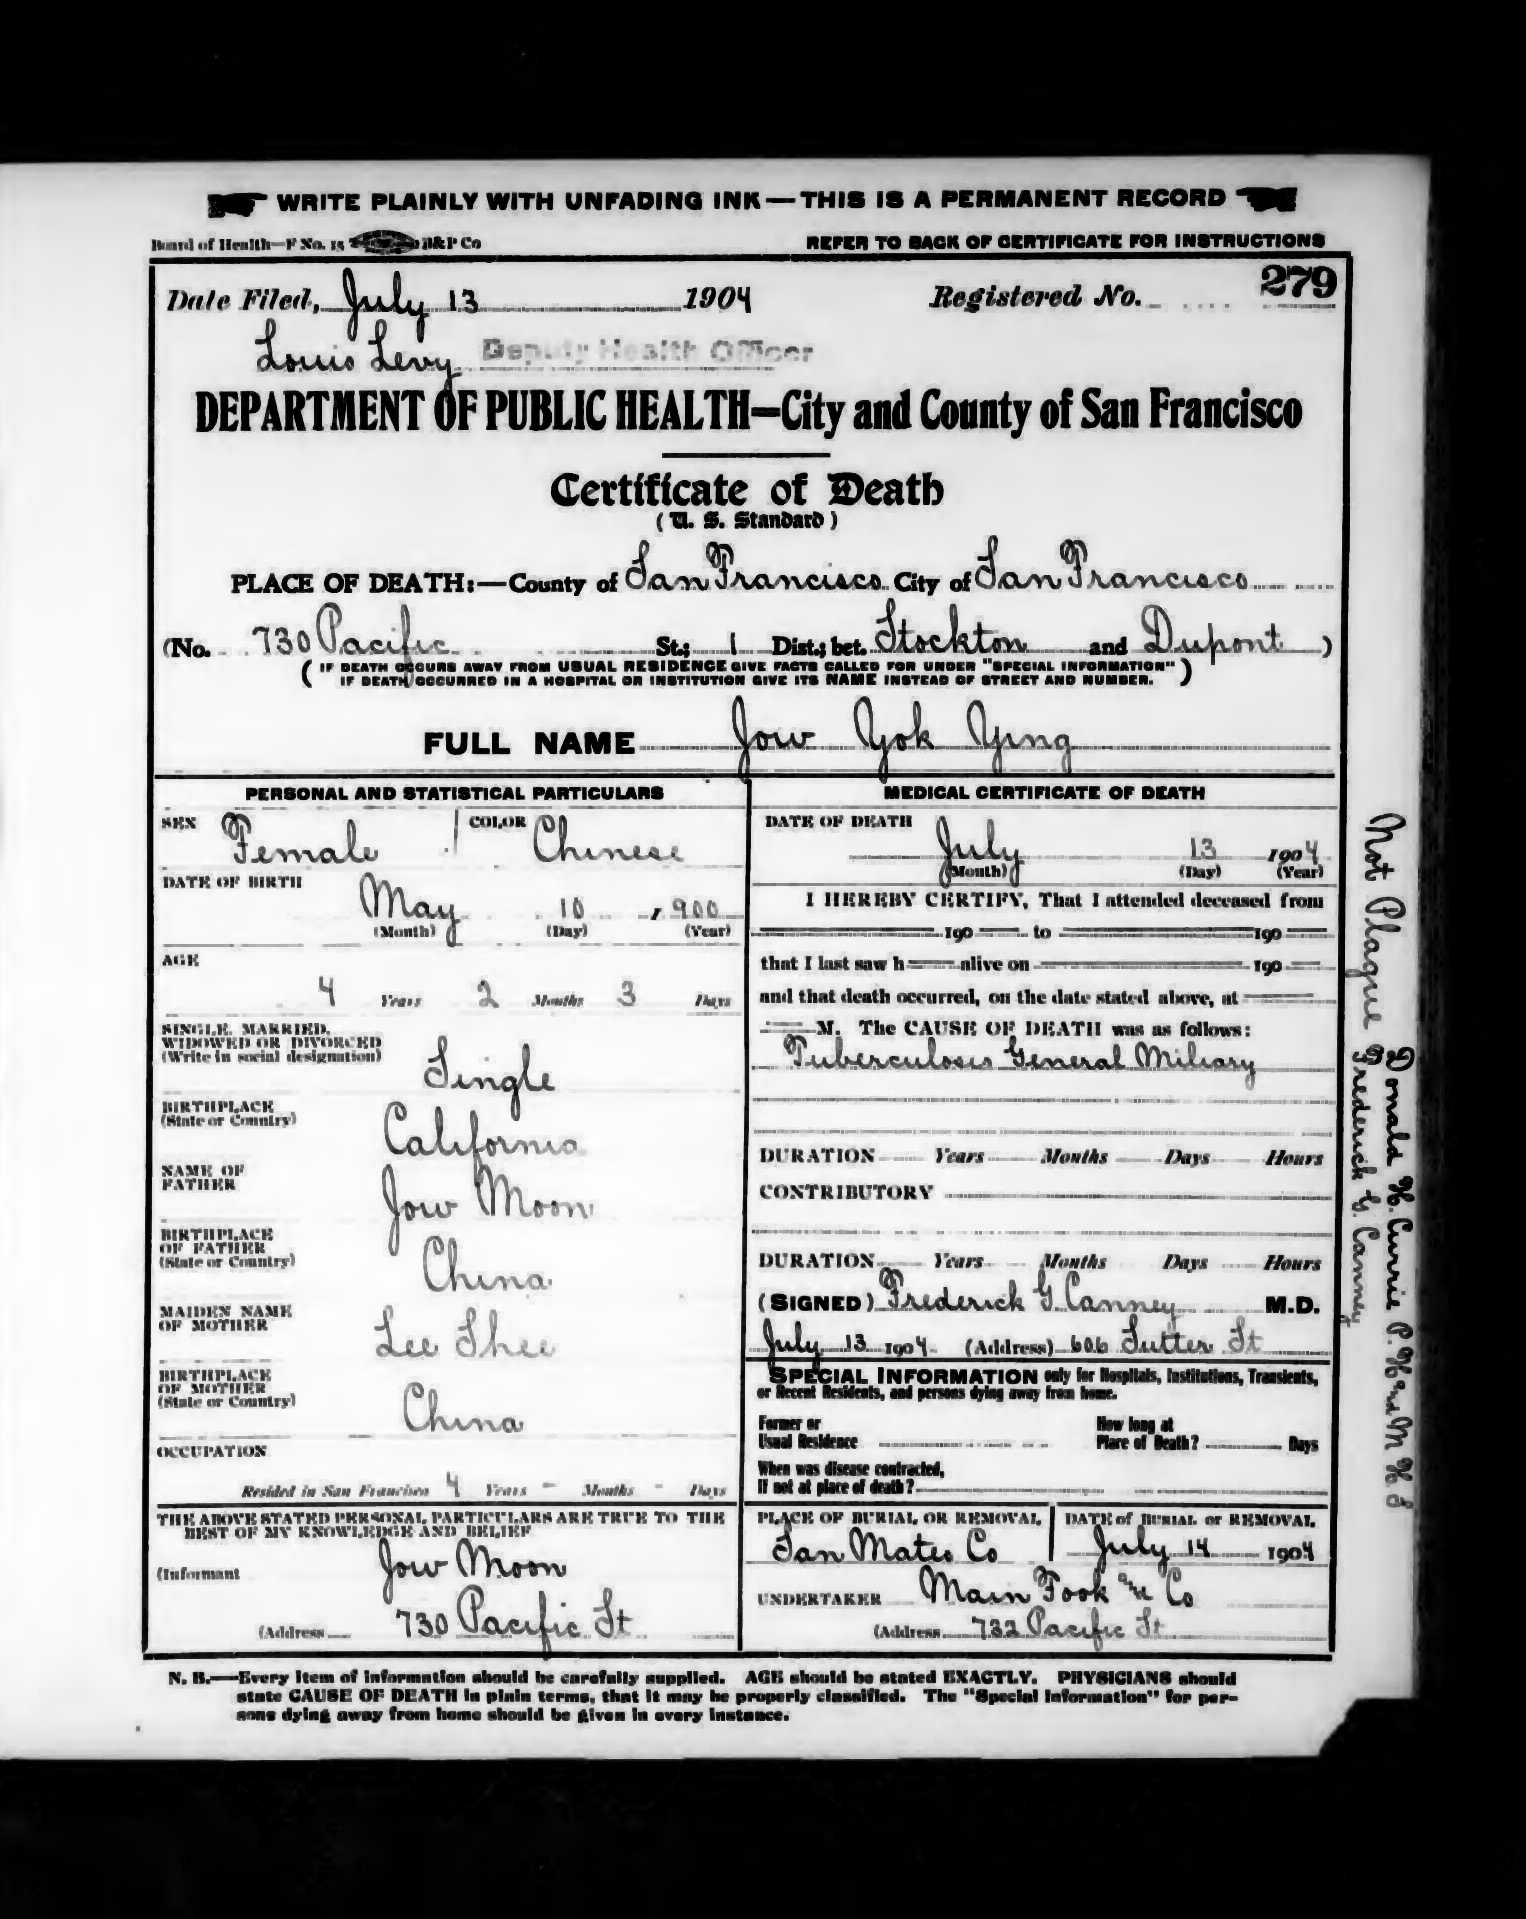 WRITE PLAINLY WITH UNFADING INK—THIS IS A PERMANENT RECORD
Board of Health—F No. 15 B&P Co
REFER TO BACK OF CERTIFICATE FOR INSTRUCTIONS
Date Filed, July 13 1904 Registered No. 279
Louis Levy Deputy Health Officer
DEPARTMENT OF PUBLIC HEALTH—City and County of San Francisco
Certificate of Death
(U. S. Standard)
PLACE OF DEATH:—County of San Francisco City of San Francisco
(No. 730 Pacific St.; 1 Dist.; bet. Stockton and Dupont)
(IF DEATH OCCURS AWAY FROM USUAL RESIDENCE GIVE FACTS CALLED FOR UNDER "SPECIAL INFORMATION"
IF DEATH OCCURRED IN A HOSPITAL OR INSTITUTION GIVE ITS NAME INSTEAD OF STREET AND NUMBER.)
FULL NAME Jow Yok Ying
PERSONAL AND STATISTICAL PARTICULARS
SEX Female COLOR Chinese
DATE OF BIRTH
May 10, 1900
(Month) (Day) (Year)
AGE
4 Years 2 Months 3 Days
SINGLE, MARRIED,
WIDOWED OR DIVORCED
(Write in social designation)
Single
BIRTHPLACE
(State or Country)
California
NAME OF
FATHER
Jow Moon
BIRTHPLACE
OF FATHER
(State or Country)
China
MAIDEN NAME
OF MOTHER
Lee Shee
BIRTHPLACE
OF MOTHER
(State or Country)
China
OCCUPATION
Resided in San Francisco 4 Years - Months - Days
THE ABOVE STATED PERSONAL PARTICULARS ARE TRUE TO THE
BEST OF MY KNOWLEDGE AND BELIEF
(Informant Jow Moon
(Address 730 Pacific St
MEDICAL CERTIFICATE OF DEATH
DATE OF DEATH
July 13 1904
(Month) (Day) (Year)
I HEREBY CERTIFY, That I attended deceased from
190 to 190
that I last saw h alive on 190
and that death occurred, on the date stated above, at
M. The CAUSE OF DEATH was as follows:
Tuberculosis General Miliary
DURATION Years Months Days Hours
CONTRIBUTORY
DURATION Years Months Days Hours
(SIGNED) Frederick G. Canney M.D.
July 13 1904 (Address) 606 Sutter St
SPECIAL INFORMATION only for Hospitals, Institutions, Transients,
or Recent Residents, and persons dying away from home.
Former or
Usual Residence
How long at
Place of Death? Days
When was disease contracted,
If not at place of death?
PLACE OF BURIAL OR REMOVAL
San Mateo Co
DATE of BURIAL or REMOVAL
July 14 1904
UNDERTAKER Main Fook and Co
(Address 732 Pacific St
N. B.—Every item of information should be carefully supplied. AGE should be stated EXACTLY. PHYSICIANS should
state CAUSE OF DEATH in plain terms, that it may be properly classified. The "Special Information" for per-
sons dying away from home should be given in every instance.
Not Plague
Donald H. Currie P. H and M H S
Frederick G. Canney